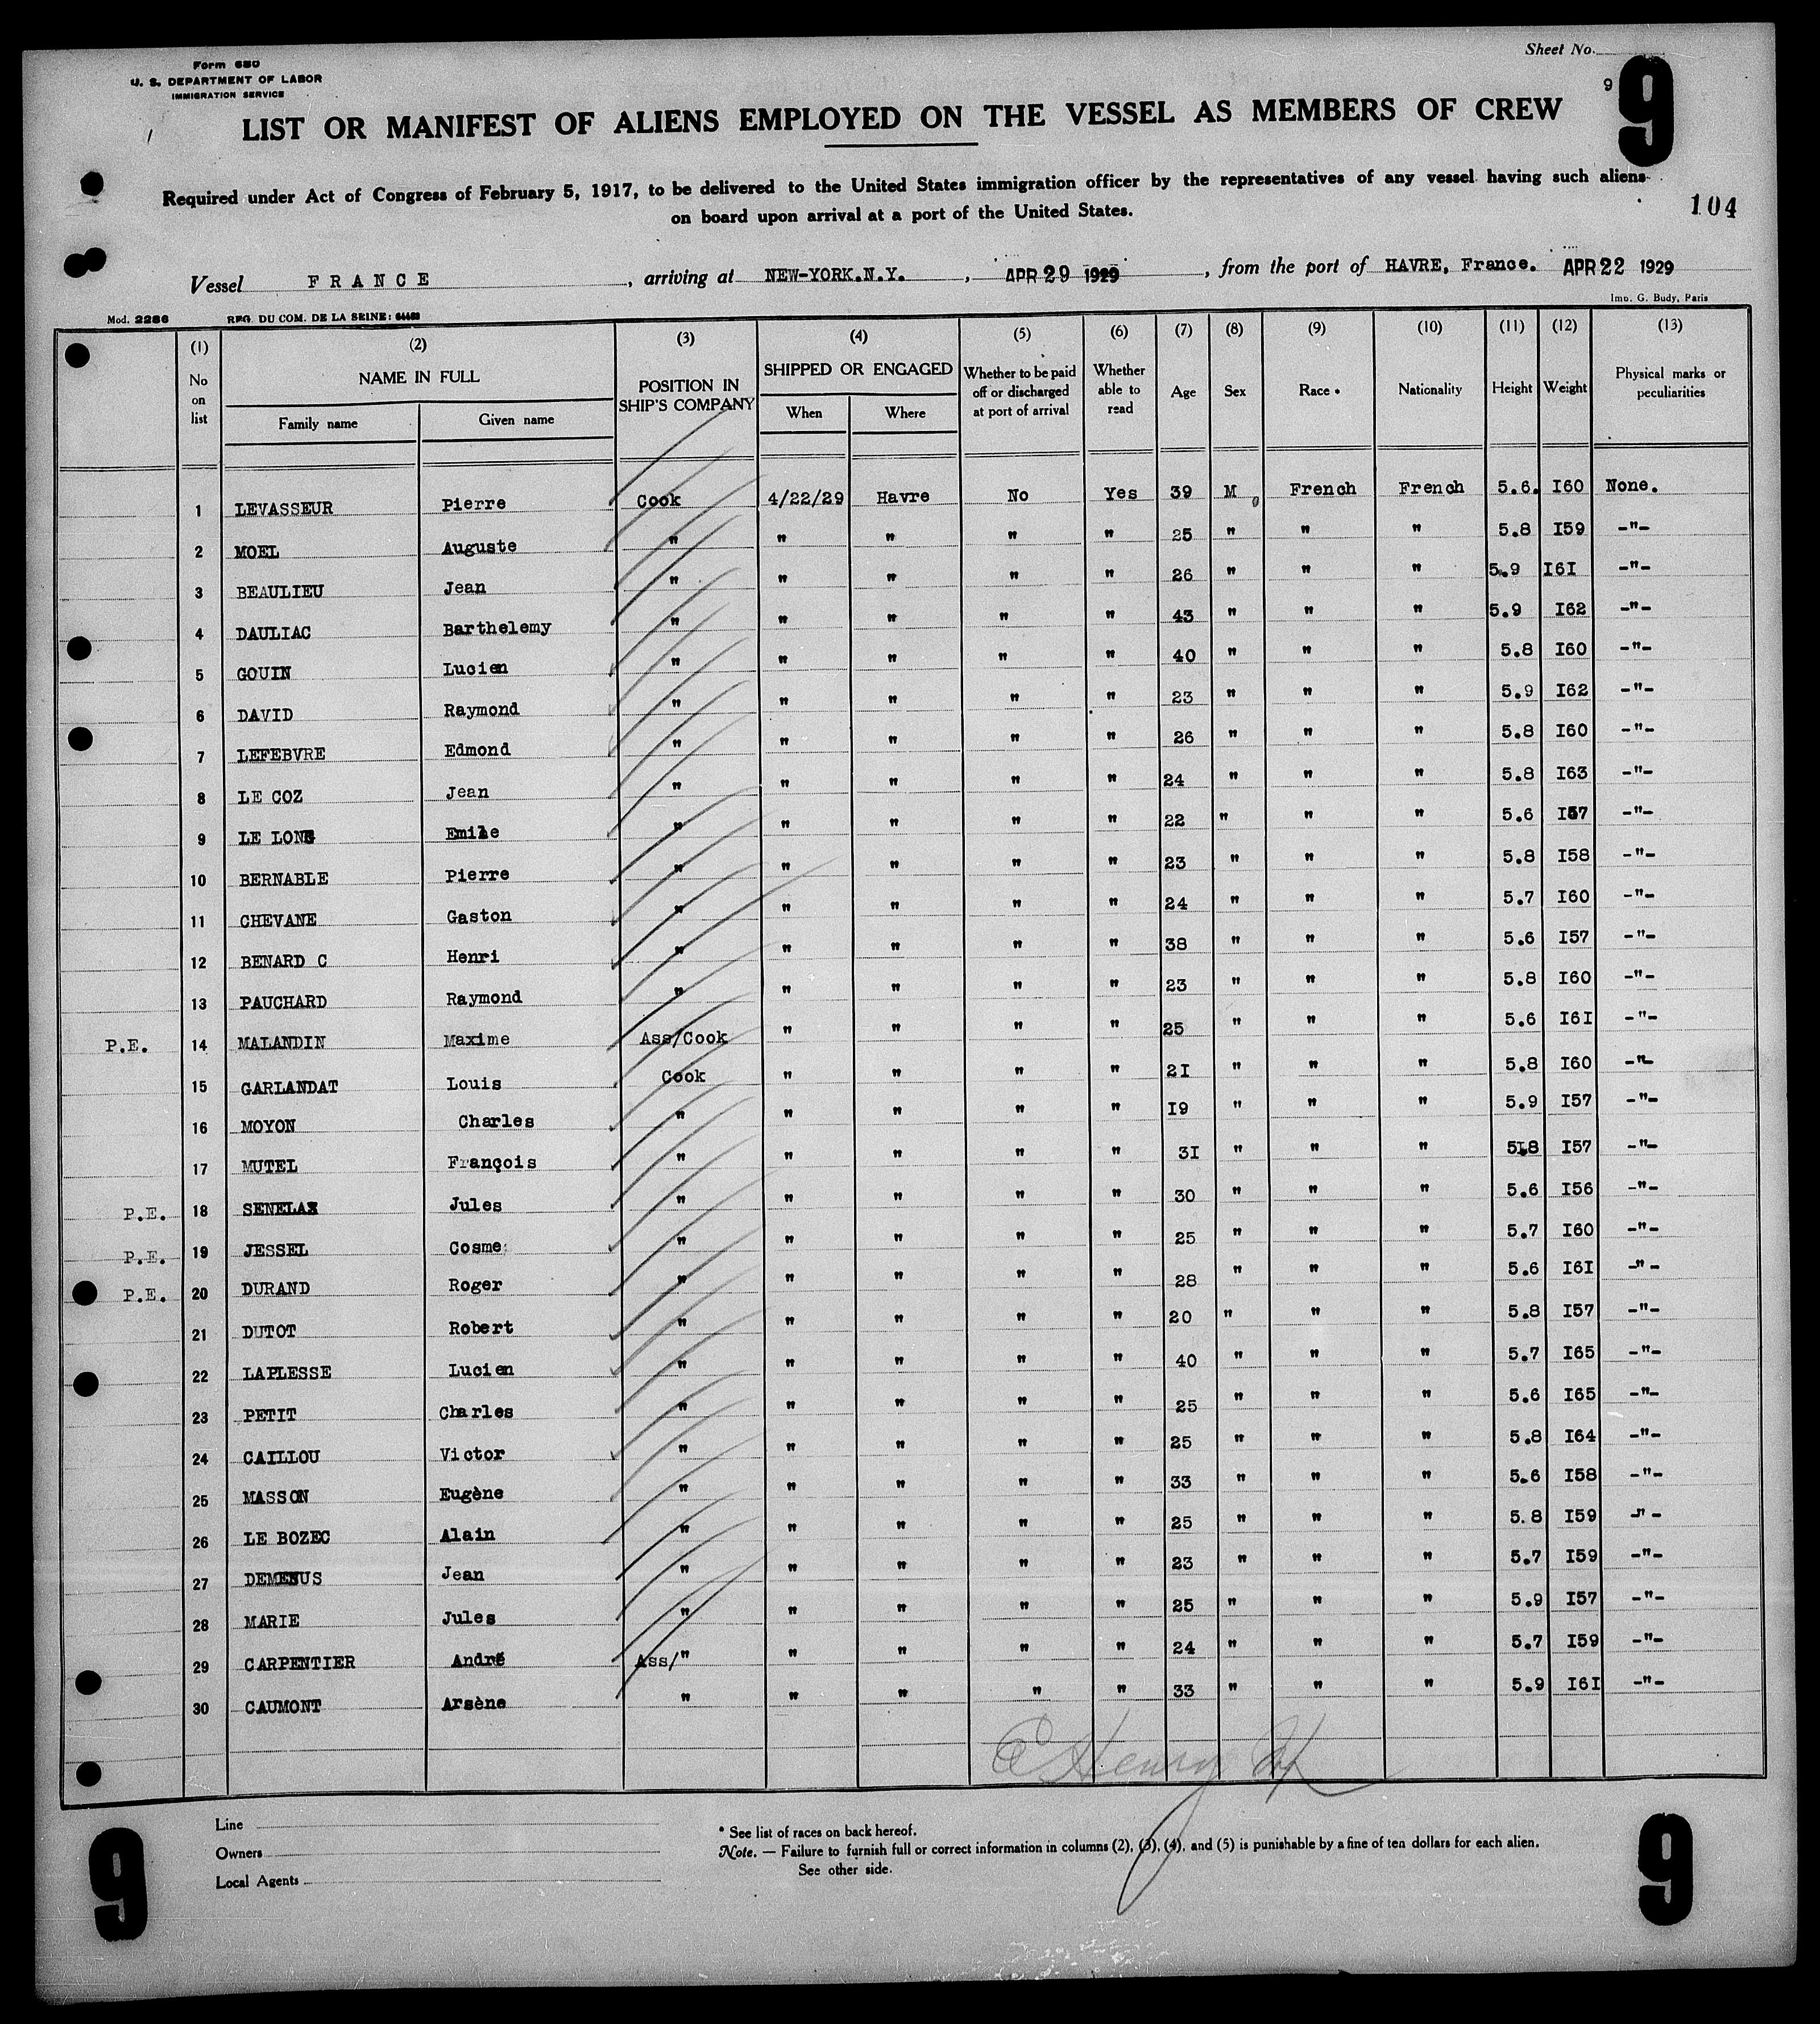 Sheet No.
Form 680
U. S. DEPARTMENT OF LABOR
IMMIGRATION SERVICE
9 9
LIST OR MANIFEST OF ALIENS EMPLOYED ON THE VESSEL AS MEMBERS OF CREW
Required under Act of Congress of February 5, 1917, to be delivered to the United States immigration officer by the representatives of any vessel having such aliens
on board upon arrival at a port of the United States.
104
Vessel FRANCE, arriving at NEW-YORK.N.Y., APR 29 1929, from the port of HAVRE, France. APR 22 1929
Imp. G. Body, Paris
Mod. 2286 REG. DU COM. DE LA SEINE:
(1) (2) (3) (4) (5) (6) (7) (8) (9) (10) (11) (12) (13)
No on list NAME IN FULL Family name Given name POSITION IN SHIP'S COMPANY SHIPPED OR ENGAGED When Where Whether to be paid off or discharged at port of arrival Whether able to read Age Sex Race * Nationality Height Weight Physical marks or peculiarities
1 LEVASSEUR Pierre Cook 4/22/29 Havre No Yes 39 M French French 5.6. I60 None.
2 MOEL Auguste " " " " " 25 " " " 5.8 I59 -"-
3 BEAULIEU Jean " " " " " 26 " " " 5.9 I6I -"-
4 DAULIAC Barthelemy " " " " " 43 " " " 5.9 I62 -"-
5 GOUIN Lucien " " " " " 40 " " " 5.8 I60 -"-
6 DAVID Raymond " " " " " 23 " " " 5.9 I62 -"-
7 LEFEBVRE Edmond " " " " " 26 " " " 5.8 I60 -"-
8 LE COZ Jean " " " " " 24 " " " 5.8 I63 -"-
9 LE LONG Emile " " " " " 22 " " " 5.6 I57 -"-
10 BERNABLE Pierre " " " " " 23 " " " 5.8 I58 -"-
11 CHEVANE Gaston " " " " " 24 " " " 5.7 I60 -"-
12 BENARD C Henri " " " " " 38 " " " 5.6 I57 -"-
13 PAUCHARD Raymond " " " " " 23 " " " 5.8 I60 -"-
P.E. 14 MALANDIN Maxime Ass/Cook " " " " 25 " " " 5.6 I6I -"-
15 GARLANDAT Louis Cook " " " " 2I " " " 5.8 I60 -"-
16 MOYON Charles " " " " " I9 " " " 5.9 I57 -"-
17 MUTEL François " " " " " 3I " " " 5.8 I57 -"-
P.E. 18 SENELAX Jules " " " " " 30 " " " 5.6 I56 -"-
P.E. 19 JESSEL Cosme " " " " " 25 " " " 5.7 I60 -"-
P.E. 20 DURAND Roger " " " " " 28 " " " 5.6 I6I -"-
21 DUTOT Robert " " " " " 20 " " " 5.8 I57 -"-
22 LAPLESSE Lucien " " " " " 40 " " " 5.7 I65 -"-
23 PETIT Charles " " " " " 25 " " " 5.6 I65 -"-
24 CAILLOU Victor " " " " " 25 " " " 5.8 I64 -"-
25 MASSON Eugène " " " " " 33 " " " 5.6 I58 -"-
26 LE BOZEC Alain " " " " " 25 " " " 5.8 I59 -"-
27 DEMENUS Jean " " " " " 23 " " " 5.7 I59 -"-
28 MARIE Jules " " " " " 25 " " " 5.9 I57 -"-
29 CARPENTIER André Ass/" " " " " 24 " " " 5.7 I59 -"-
30 CAUMONT Arsène " " " " " 33 " " " 5.9 I6I -"-
Henry
Line
Owners
Local Agents
* See list of races on back hereof.
Note. — Failure to furnish full or correct information in columns (2), (3), (4), and (5) is punishable by a fine of ten dollars for each alien.
See other side.
9 9